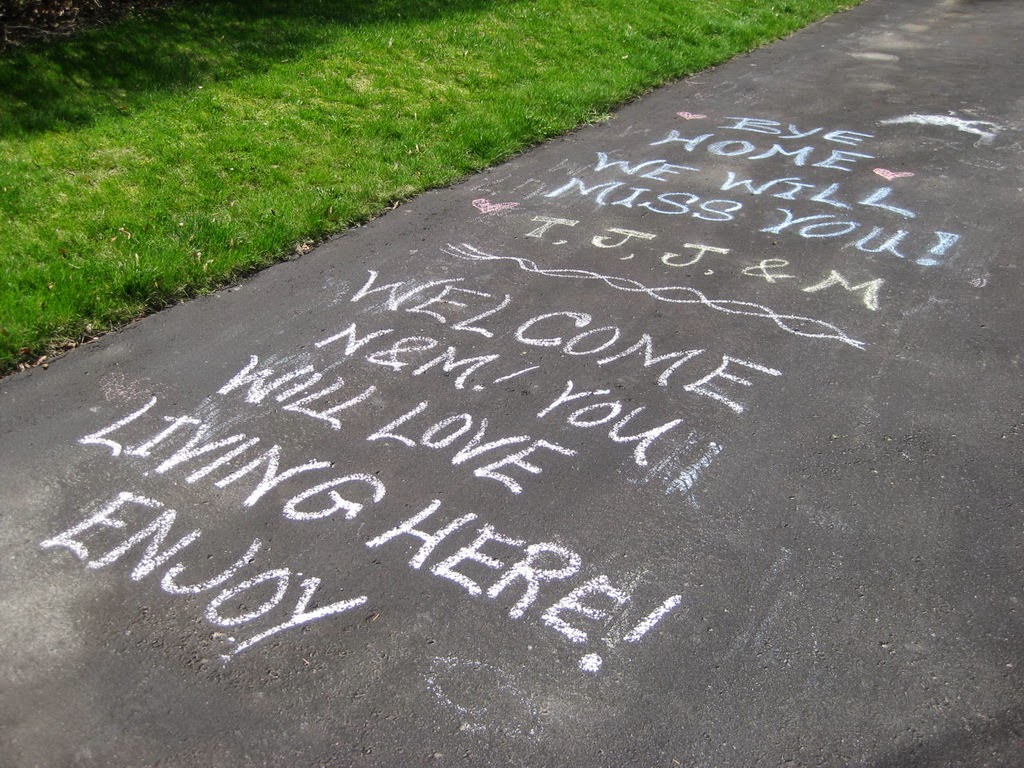 BYE
HOME
WE WILL
MISS YOU!
T, J, J, & M
WELCOME
N&M! YOU
WILL LOVE
LIVING HERE!
ENJOY